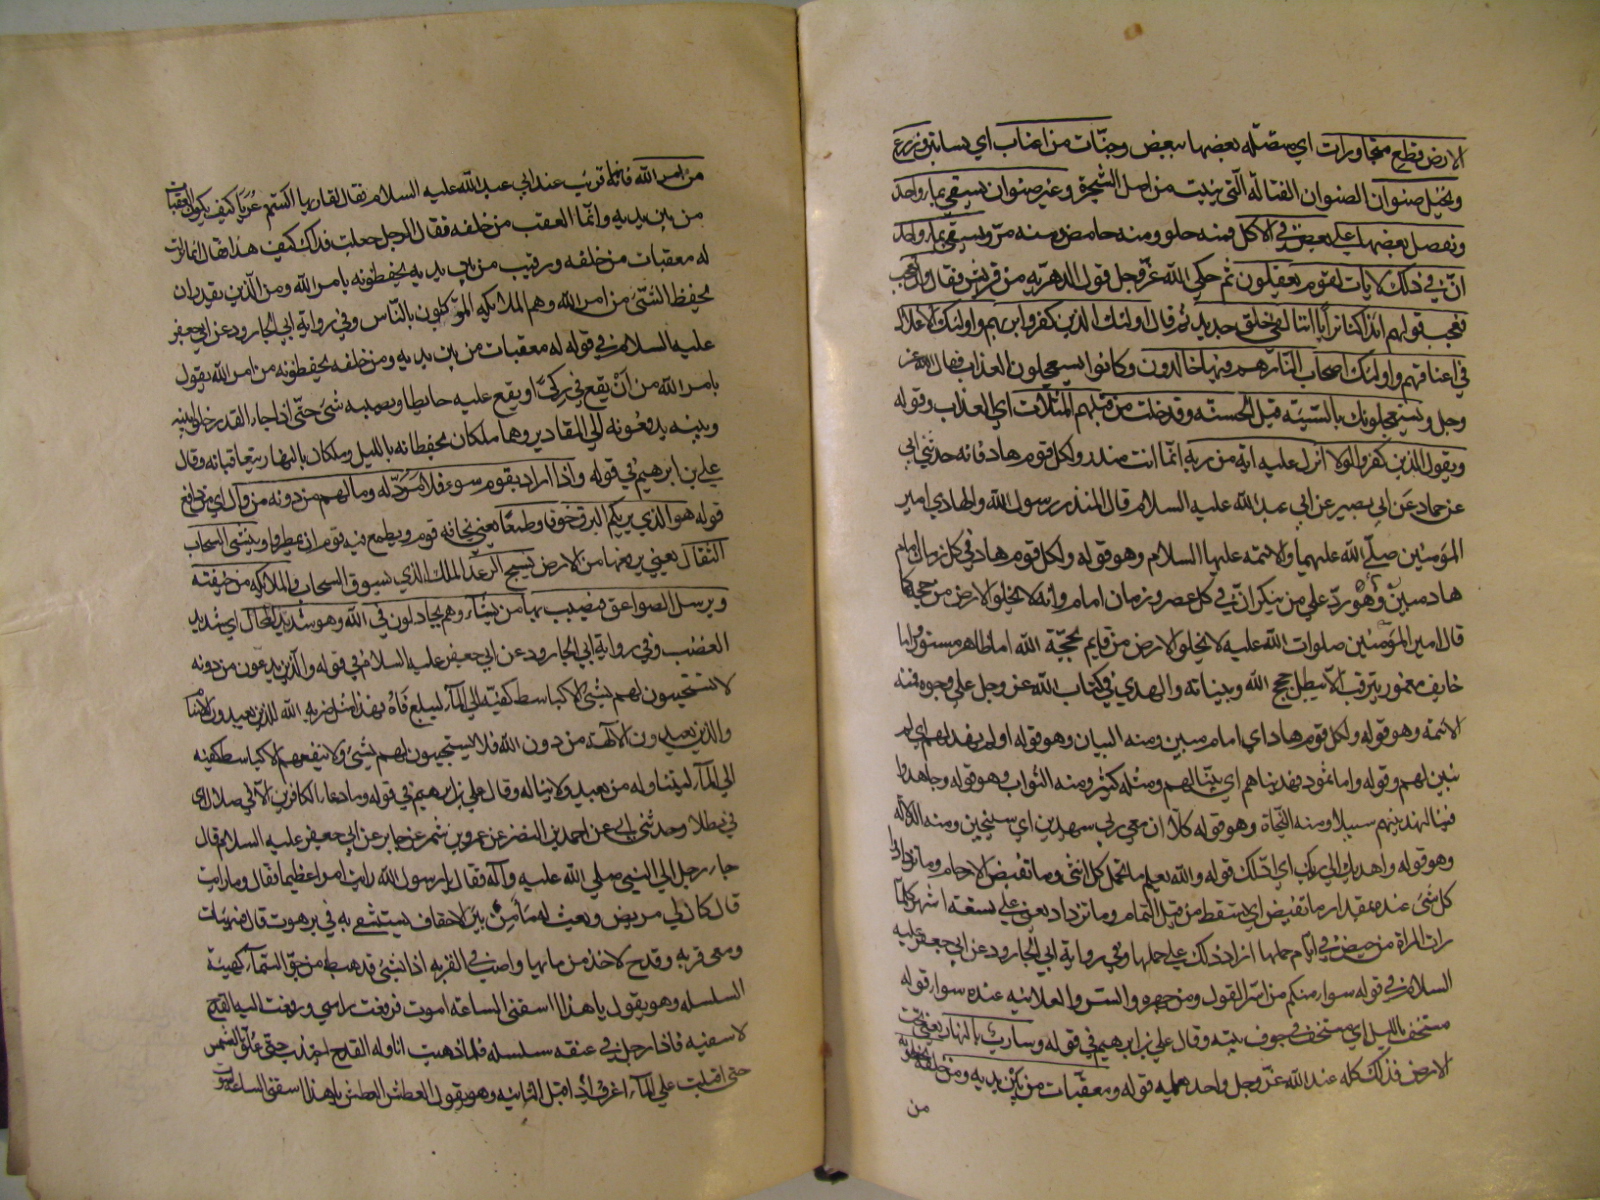 الارض قطع متجاورات اي متصله بعضها ببعض وجنّات من اعناب اي بساتين وزرع
ونخيل صنوان الصنوان الفتاله التي ينبت من اصل الشجرة وغير صنوان يسقي بماء واحد
ونفصل بعضها علي بعض في الاكل فمنه حلو ومنه حامض ومنه مرّ ويسقي بماء واحد
انّ في ذلك لايات لقوم يعقلون ثم حكي الله عزّ وجل قول الدهريه من قريش فقال وان تعجب
فعجب قولهم ائذا كنا ترابا ائنا لفي خلق جديد ثم قال اولئك الذين كفروا بربهم واولئك الاغلال
في اعناقهم واولئك اصحاب النار هم فيها خالدون وكانوا يستعجلون العذاب فقال الله عز
وجل ويستعجلونك بالسّيئه قبل الحسنه وقد خلت من قبلهم المثلات اي العذاب وقوله
ويقول الذين كفروا لولا انزل عليه اية من ربه انما انت منذر ولكل قوم هاد فانه حدثني ابي
عن حماد عن ابي بصير عن ابي عبد الله عليه السلام قال المنذر رسول الله والهادي امير
المؤمنين صلّي الله عليهما والائمه عليها السلام وهو قوله ولكل قوم هاد في كل زمان امام
هاد مبين وهو ردّ علي من ينكر انّ في كل عصر وزمان امام وانه لا يخلو الارض من حجة كما
قال امير المؤمنين صلوات الله عليه لا يخلو الارض من قايم بحجّة الله اما ظاهر مستور واما
خايف مغمور يترقب لا يبطل حجج الله وبيناته والهدي في كتاب الله عز وجل علي وجوه فمنه
الائمة وهو قوله ولكل قوم هاد اي امام مبين ومنه البيان وهو قوله اولم يهد لهم اي لم
نبين لهم وقوله واما ثمود فهديناهم اي بيّنا لهم ومثله كثير ومنه الثواب وهو قوله وجاهدوا
فينا لنهدينهم سبيلا ومنه النجاة وهو قوله كلّا ان معي ربي سيهدين اي سينجين ومنه الدلاله
وهو قوله واهديك الي ربك اي ادّلك قوله والله يعلم ما تحمل كل انثي وما تغيض الارحام وما تزداد و
كل شي عنده بمقدار ما تغيض اي يسقط من قبل التمام وما تزداد يعني علي تسعه اشهر كلّما
رات المراة من حيض في ايّام حملها ازداد ذلك علي حملها وفي رواية ابي الجارود عن ابي جعفر عليه
السلام في قوله سواء منكم من اسّر القول ومن جهر به والسّر والعلانيه عنده سواء قوله
مستخف بالليل اي مستخف في جوف بيته وقال علي بن ابرهيم في قوله وسارب بالنهار يعني تحت
الارض فذلك كله عند الله عزّ وجل واحد يعلمه قوله ومعقّبات من بين يديه ومن خلفه يحفظونه
من
من امر الله فانها قرئت عند ابي عبد الله عليه السلام فقال لقاريها الستم عُرَبًا كيف يكون المعقبات
من بين يديه وانّما العقب من خلفه فقال الرجل جعلت فداك كيف هذا فقال انما نزلت
له معقبات من خلفه ورقيب من بين يديه يحفظونه بامر الله ومن الذي يقدر ان
يحفظ الشئ من امر الله وهم الملائكه الموكلون بالنّاس وفي رواية ابي الجارود عن ابي جعفر
عليه السلام في قوله له معقبات من بين يديه ومن خلفه يحفظونه من امر الله يقول
بامر الله من اَنْ يقع في ركيّ او يقع عليه حايط او يصيبه شئ حتي اذا جاء القدر خلوا بينه
وبينه يدفعونه الي المقادير وهما ملكان يحفظانه بالليل وملكان بالنهار يتعاقبانه وقال
علي بن ابرهيم في قوله واذا اراد بقوم سوء فلا مَردّ له وما لهم من دونه من وال اي من دافع
قوله هو الذي يريكم البرق خوفا وطمعًا يعني يخافه قوم ويطمع فيه قوم ان يمطروا وينشي السحاب
الثقال يعني يرفعها من الارض يسبح الرعد الملك الذي يسوق السحاب والملائكه من خيفته
ويرسل الصواعق فيصيب بها من يشاء وهم يجادلون في الله وهو شديد المحال اي شديد
الغضب وفي رواية ابي الجارود عن ابي جعفر عليه السلام في قوله والذين يدعون من دونه
لا يستجيبون لهم بشئ الا كباسط كفيّه الي الماء ليبلغ فاهُ فهذا مثل ضربه الله للذين يعبدون الاصنام
والذين يعبدون الالهة من دون الله فلا يستجيبون لهم بشئ ولا ينفعهم الا كباسط كفيه
الي الماء ليتناوله من بعيد ولا يناله وقال علي بن ابرهيم في قوله وما دعاء الكافرين الا في ضلال اي
في بطلان وحدثني ابي عن احمد بن النضر عن عمرو بن شمر عن جابر عن ابي جعفر عليه السلام قال
جاء رجل الي النبي صلي الله عليه وآله فقال يا رسول الله رايت امرا عظيما فقال وما رايت
قال كان لي مريض ونعت له ماء من بئر الاحقاف يستشفي به في برهوت قال فتهيات
ومعي قربه وقدح لاخذ من مائها واصب في القربه اذا بشئ قد هبط من جوّ السماء كهيئة
السلسله وهو يقول يا هذا اسقني الساعه اموت فرفعت راسي ورفعت اليه القدح
لاسقيه فاذا رجل في عنقه سلسله فلما ذهبت اناوله القدح اجتذب حتي عُلّق بالشمس
حتي اقبلت علي الماء اغرف اذ اقبل الثانيه وهو يقول العطش العطش يا هذا اسقني الساعه اموت